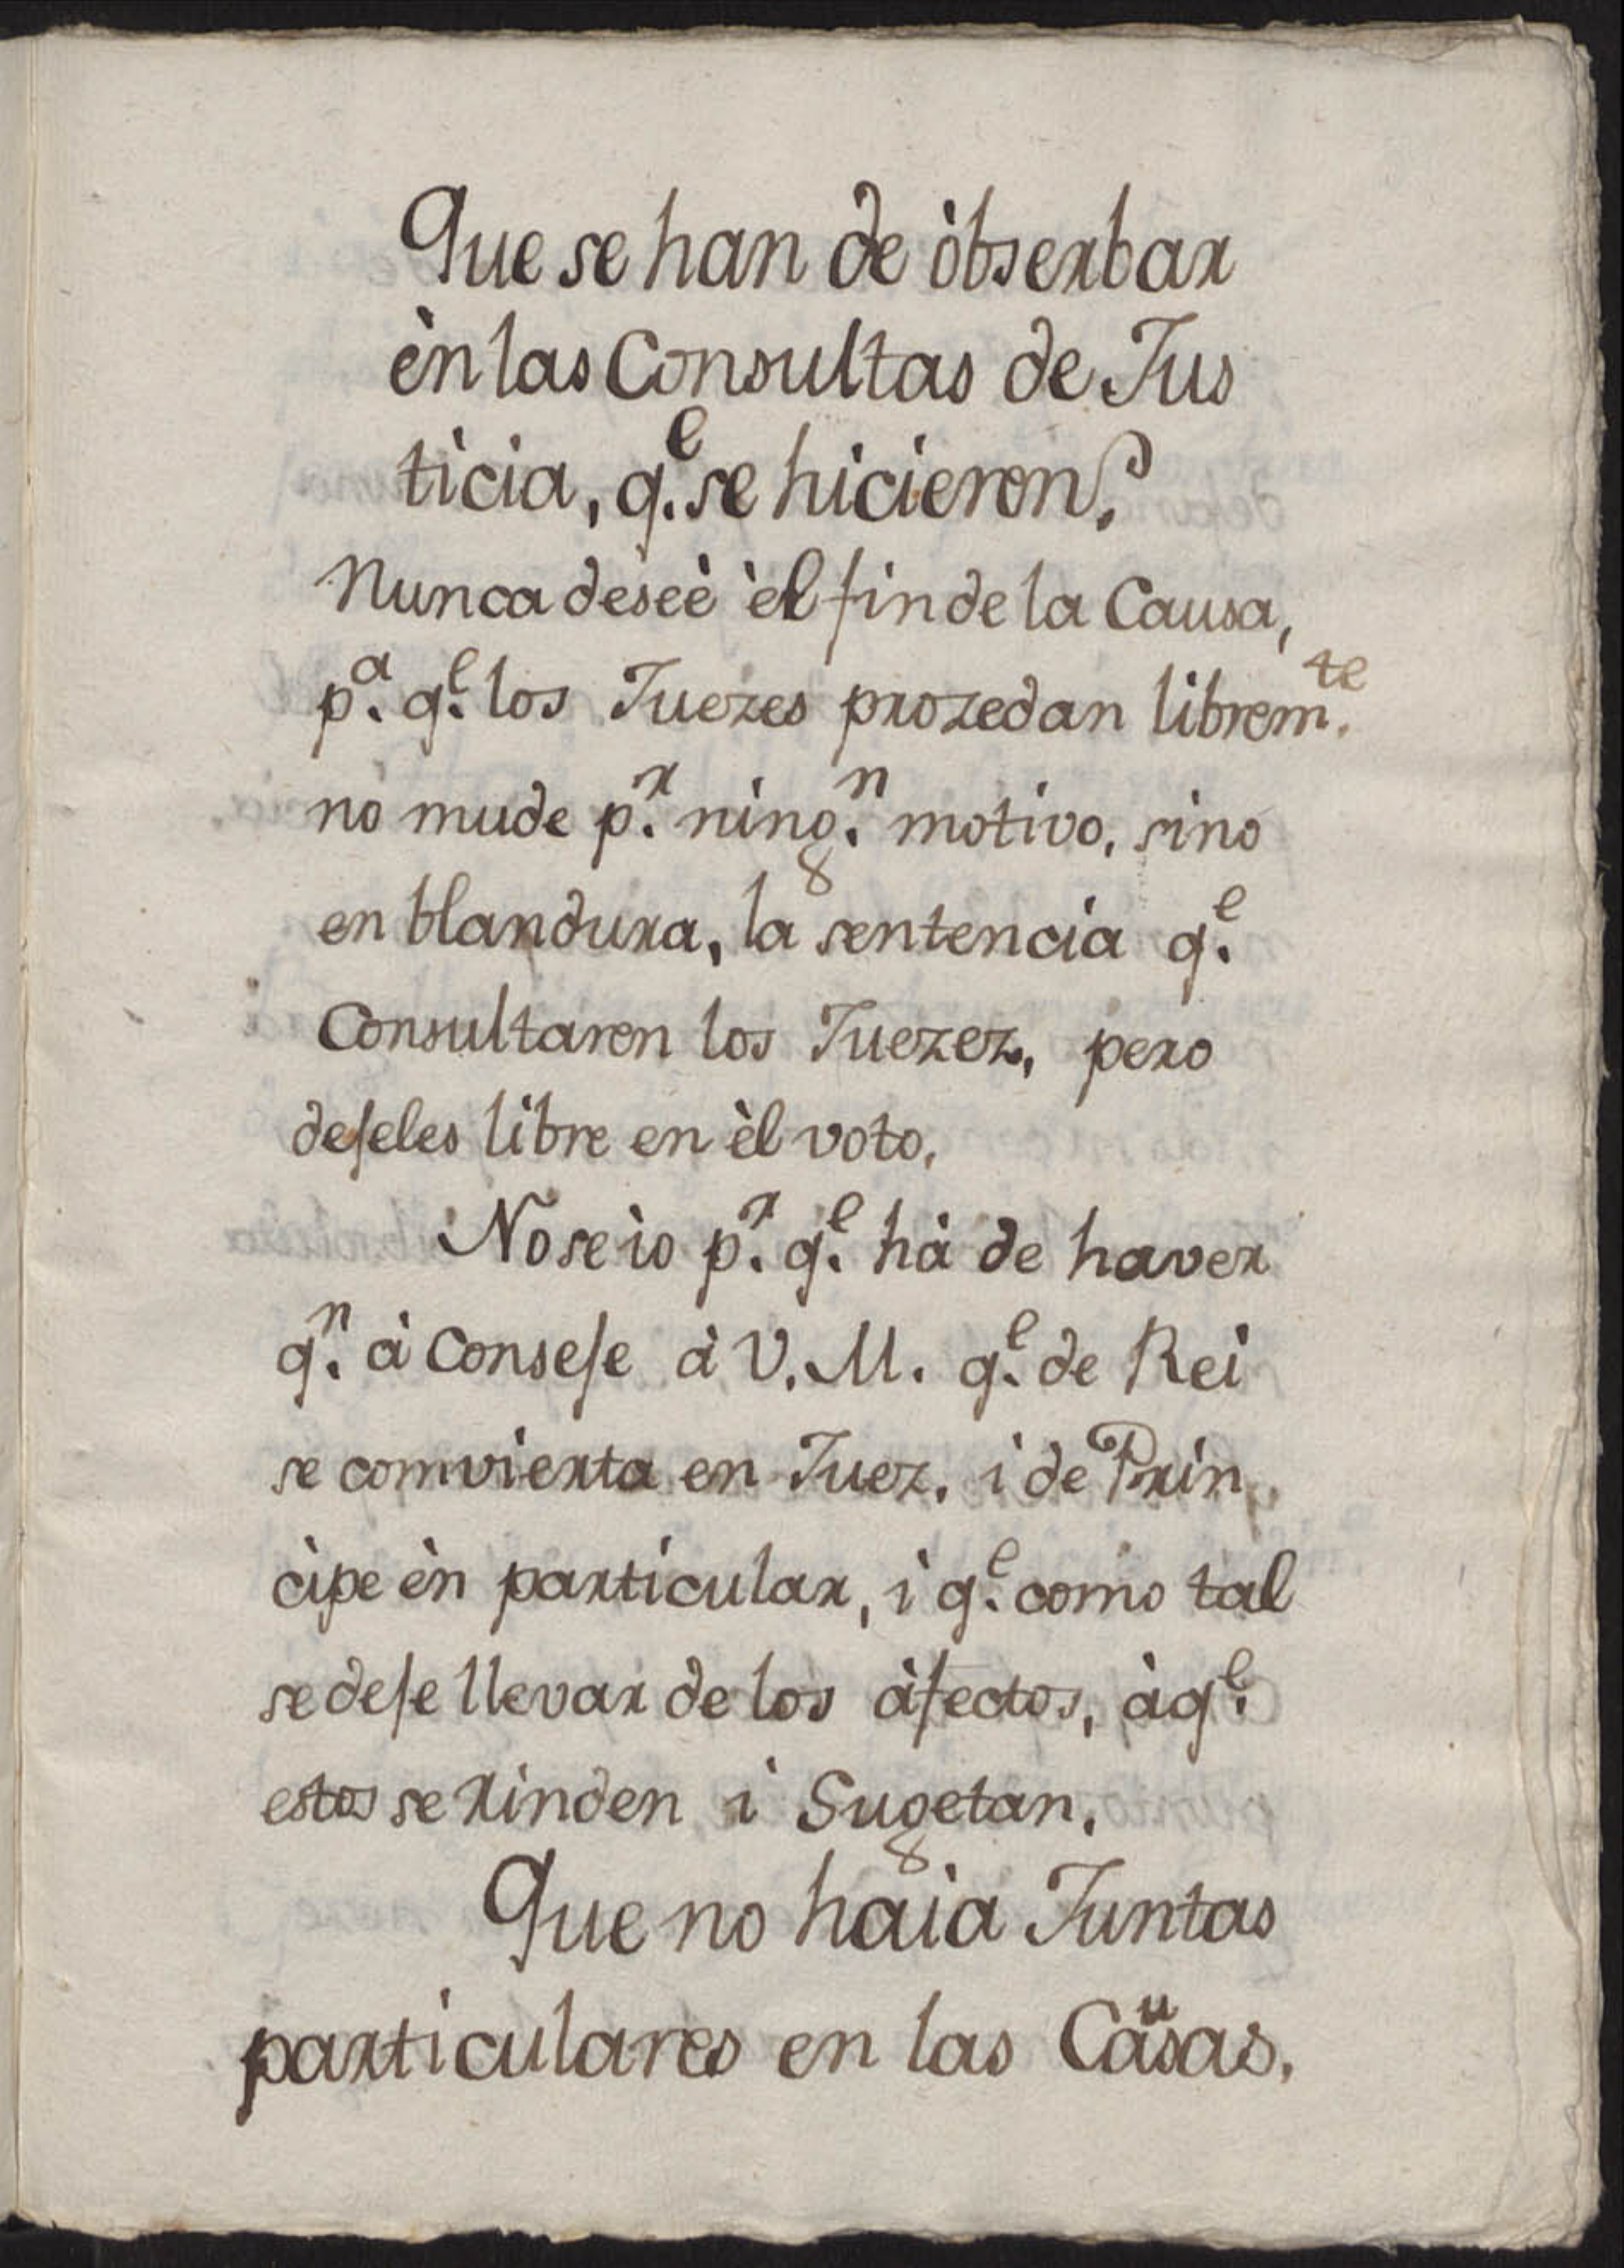 Que se han de òbserbar
èn las Consultas de Jus
ticia, q.e se hicieron?
Nunca deseè èl fin de la Causa,
p.a q.e los Juezes prozedan librem.te
no mude p.r ning.n motivo, sino
en blandura, la sentencia q.e
Consultaren los Juezez, pero
dejeles libre en èl voto.
No se io p.r q.e hà de haver
q.n à Conseje à V. M. q.e de Rei
se comvierta en Juez, i de Prin
cipe èn particular, i q.e como tal
se deje llevar de los àfectos, à q.e
estos se rinden i Sugetan.
Que no haia Juntas
particulares en las Causas.